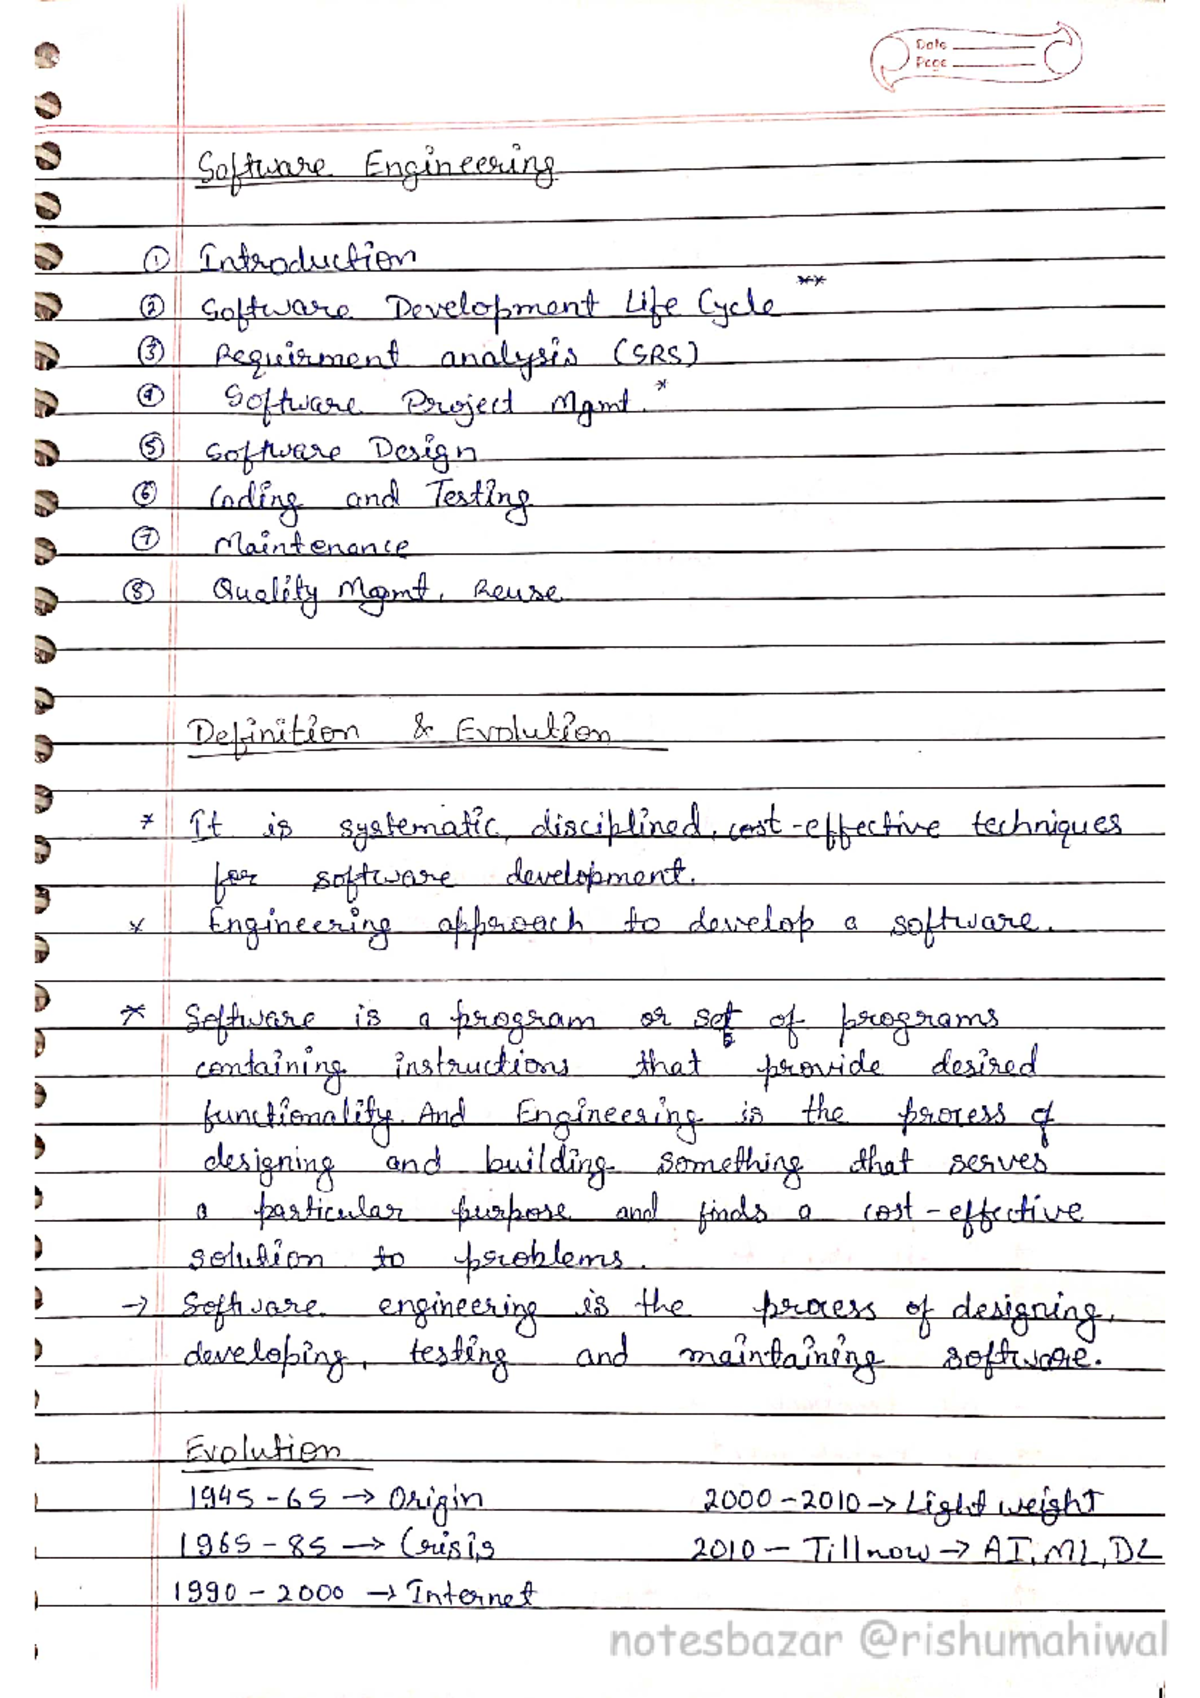 Date
Page
Software Engineering
① Introduction
② Software Development Life Cycle **
③ Requirment analysis (SRS)
④ Software Project Mgmt. *
⑤ Software Design
⑥ Coding and Testing
⑦ Maintenance
⑧ Quality Mgmt, Reuse
Definition & Evolution
* It is systematic, disciplined, cost-effective techniques
for software development.
* Engineering approach to develop a software.
* Software is a program or set of programs
containing instructions that provide desired
functionality. And Engineering is the process of
designing and building something that serves
a particular purpose and finds a cost-effective
solution to problems.
→ Software engineering is the process of designing,
developing, testing and maintaining software.
Evolution
1945-65 → Origin 2000-2010 → Light weight
1965-85 → Crisis 2010 - Till now → AI, ML, DL
1990-2000 → Internet
notesbazar @rishumahiwal